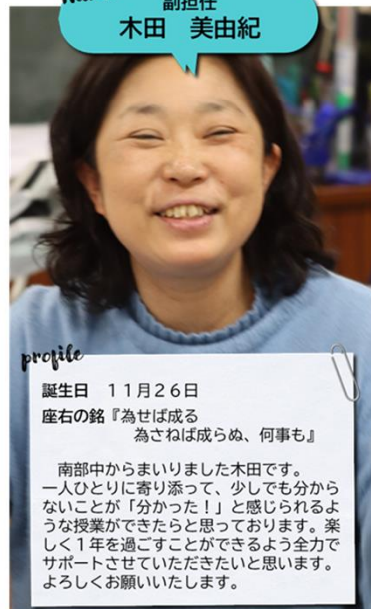 副担任
木田　美由紀
profile
誕生日　１１月２６日
座右の銘『為せば成る
為さねば成らぬ、何事も』
南部中からまいりました木田です。
一人ひとりに寄り添って、少しでも分から
ないことが「分かった！」と感じられるよ
うな授業ができたらと思っております。楽
しく１年を過ごすことができるよう全力で
サポートさせていただきたいと思います。
よろしくお願いいたします。